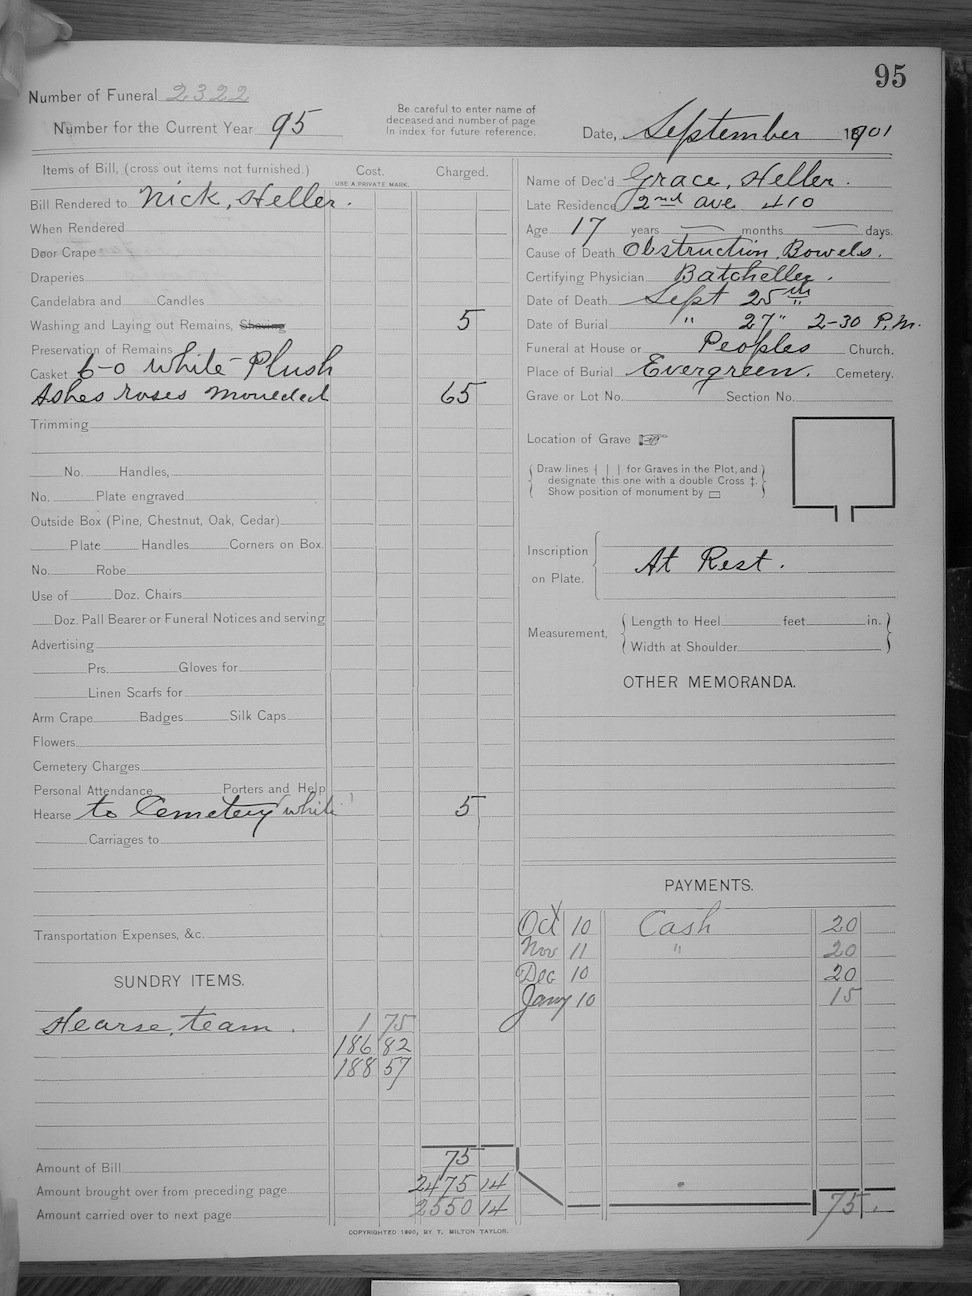 95
Number of Funeral 2322
Number for the Current Year 95
Be careful to enter name of
deceased and number of page
In index for future reference.
Date, September 1901
Items of Bill, (cross out items not furnished.) Cost. Charged.
USE A PRIVATE MARK.
Bill Rendered to Nick, Heller.
When Rendered
Door Crape
Draperies
Candelabra and Candles
Washing and Laying out Remains, Shaving 5
Preservation of Remains
Casket 6-0 White Plush
Ashes roses 65
Trimming
No. Handles,
No. Plate engraved
Outside Box (Pine, Chestnut, Oak, Cedar)
Plate Handles Corners on Box.
No. Robe
Use of Doz. Chairs
Doz. Pall Bearer or Funeral Notices and serving
Advertising
Prs. Gloves for
Linen Scarfs for
Arm Crape Badges Silk Caps
Flowers
Cemetery Charges
Personal Attendance Porters and Help
Hearse to Cemetery white 5
Carriages to
Transportation Expenses, &c.
SUNDRY ITEMS.
Hearse, team. 1 75
186 82
188 57
Amount of Bill 75
Amount brought over from preceding page 2475 14
Amount carried over to next page 2550 14
Name of Dec'd Grace, Heller.
Late Residence 2nd ave 410
Age 17 years — months — days.
Cause of Death Obstruction, Bowels.
Certifying Physician Batcheller.
Date of Death Sept 25th
Date of Burial " 27" 2-30 P.M.
Funeral at House or Peoples Church.
Place of Burial Evergreen. Cemetery.
Grave or Lot No. Section No.
Location of Grave
Draw lines | | | for Graves in the Plot, and
designate this one with a double Cross ‡.
Show position of monument by ▭
Inscription
on Plate.
At Rest.
Measurement,
Length to Heel feet in.
Width at Shoulder
OTHER MEMORANDA.
PAYMENTS.
Oct 10 Cash 20
Nov 11 " 20
Dec 10 20
Jany 10 15
75
COPYRIGHTED 1890, BY T. MILTON TAYLOR.